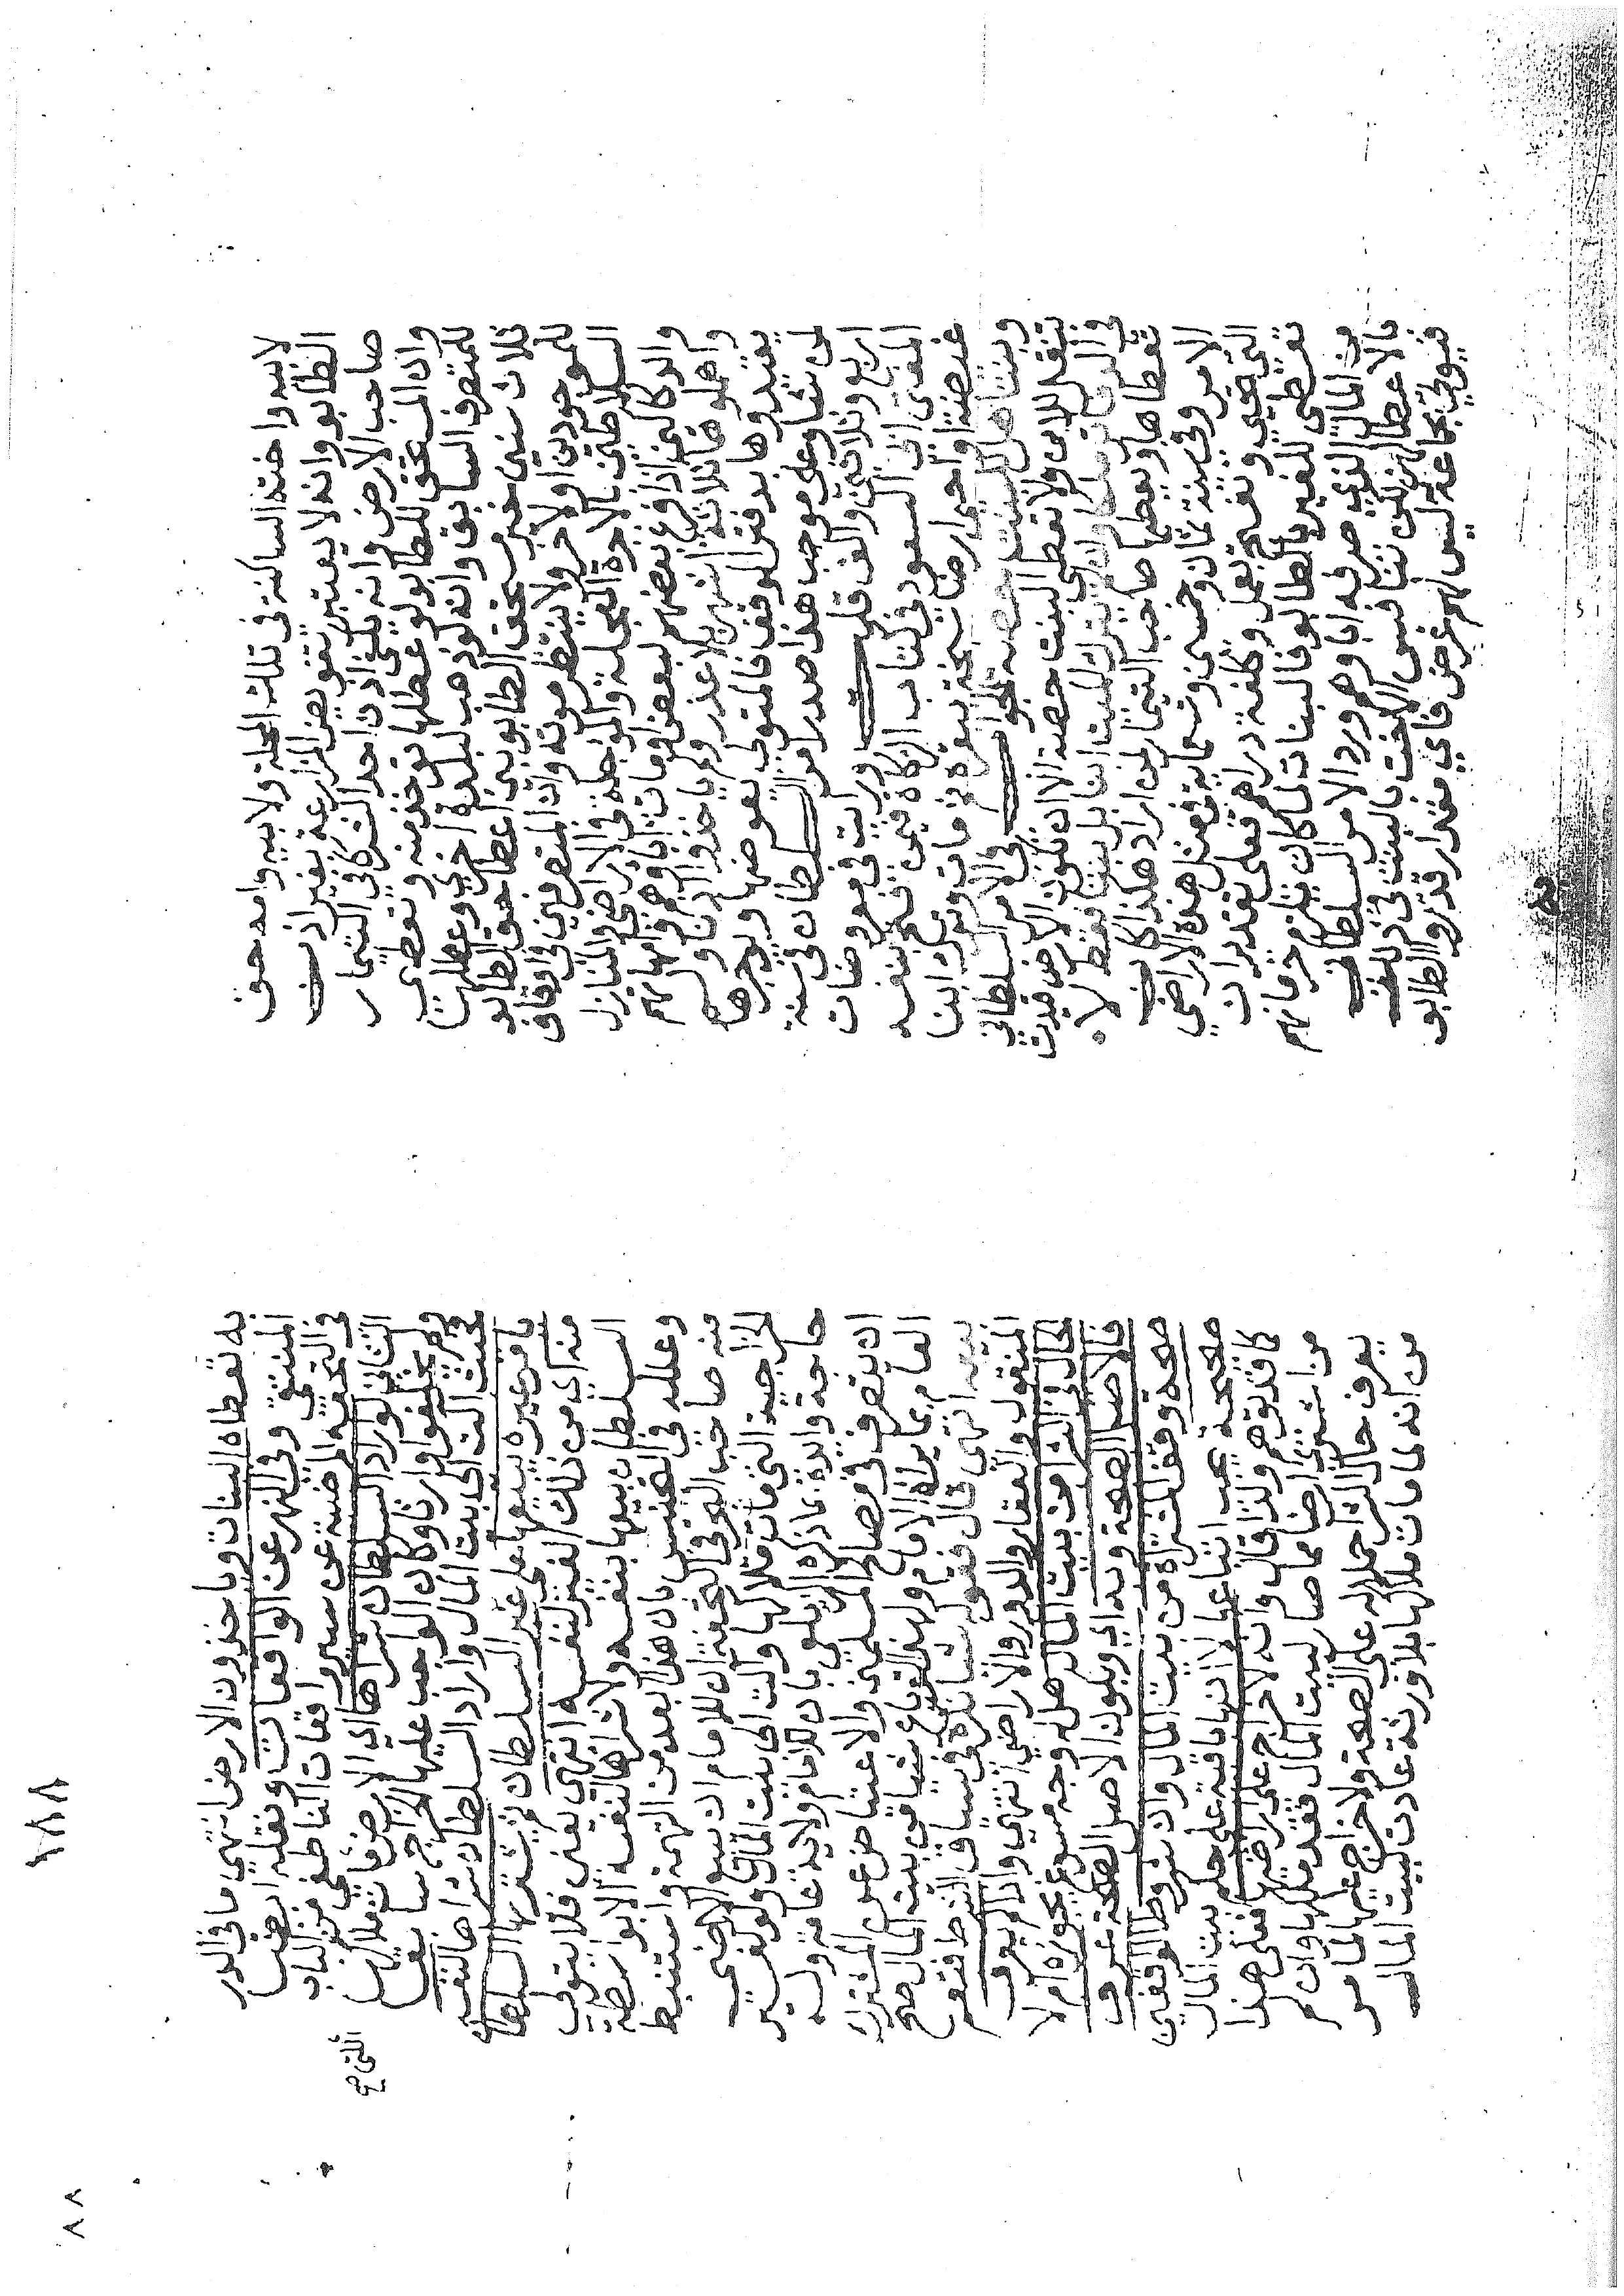 لابيه واخته الساكنة في تلك المحلة ولابيه وامه حق
الطابو وانه لا يعتبر تفويض المزارعة بغير اذن
صاحب الارض وانه يكفي اذن احد الشركا في التيمار
وان المستحق للطابو لو عطلها توخذ منه وتعطى
للمتصرف السابق وانه لو ذهب لبلدة اخرى وعطلها
ثلاث سنين خير مستحق الطابو بين اعطا حق الطابو
للموجودين او لاخر ولا ينتظر موته وان المتصرفين في اوقاف
السلاطين بالاجرة المعجلة والموجلة في الاراضي والمنازل
والدكاكين اذا فرغ بعضهم لبعض او مات اباوهم وامهاتهم
واهملوها ثلاثة اشهر بلا عذر ولم ياخذوا اذنا ولم
يقيدوها بدفتر الوقف فالمتولي يعوضها ويوجرها
لمن يشا وعلى موجب هذا صدر امر السلطان في سنة
اربع وثلاثين والف قلت ورايت في معروضات
المفتي ابي السعود في كتاب الزكاة فيمن فتح بنفسه
غيضة او احيى ارضا بسخة بقرة ثم مات وترك ابنا
وبنتا هل للبنت حصة الجواب في الامر السلطاني
تنتقل للابن ولا تعطى البنت حصة الا ان تكون الارض قيدت
في الدفاتر ملكا وان لم يترك الميت ابنا بل بنتا فقط لا
تعطاها ويعطيها صاحب التيمار لمن اراد هكذا كان
الامر وفي سنة ثمان وخمسين وتسعماية فمثل هذه الاراضي
التي تحيي وتفتح بعمل وكلفة دراهم فعلى تقدير ان
تعطى للغير بالطابو فالبنات لما كان يلزم حرمانهم
من المال الذي صرفه اباوهم ورد الامر السلطاني
بالاعطا لهن لكن تنافس الاخت بالبنت في ذلك
فيوتى بجماعة ليس لهم غرض فاي مقدار قدروا الطابو
به
١٨٨
به تعطاه البنات وياخذون الارض انتهى ما في الدر
المنتقى وفي النهر عن الواقعات ونقله ايضا
في التحفة المرضية عن سير واقعات الناطفي من الباب
الثاني لو اراد السلطان شراها اي الارض مات ملاكها
التي صح
ولم يخلفوا وارثا وكان الواجب عليها الخراج سابقا
فحيث الت الى بيت المال واراد السلطان شراها لنفسه
يامر غيره ببيعها على غير السلطان ثم يشتريها السلطان
منه اي من ذلك الغير لنفسه انتهى يعني فلا يتولى
السلطان بيعها بنفسه ولا شراها لنفسه الا بواسطة
وعلله في التجنيس بان هذا بعد من التهمة واستنبط
منه صاحب البحر في التحفة ان للامام ان يبيع الاراضي
الخراجية التي مات ملاكها والت الى بيت المال ولو لغير
حاجة وايده بما ذكره الزيلعي بان للامام ولاية عامة وله
ان يتصرف في مصالح المسلمين والاعتياض عن المشترك
العام بما يراه الامام ولهذا لو باع شيا من بيت المال صح
بيعه انتهى قال فقوله شيا نكرة في سياق الشرط فتعم
المنقول والعقار والدور والاراضي انتهى واذا لم يعرف
الحال في الشرا من بيت المال هل له وجه مسوغ يجوزه ام لا
فالاصل الصحة وبه اي وبكون الاصل الصحة عرف
صحة وقف المشتراة من بيت المال وان شروط الواقفين
صحيحة يجب اتباعها لا انها باقية على حلم بيت المال
كما قد توهم ولذا قال وانه لا خراج على اراضيها فعلى هذا
من اشترى ارضا مما صار لبيت المال فقد ملكها وان لم
يعرف حال الشرا حملا له على الصحة ولا خراج عليها لما مر
من انه لما مات ملاكها بلا ورثة عادت لبيت المال
٨٨